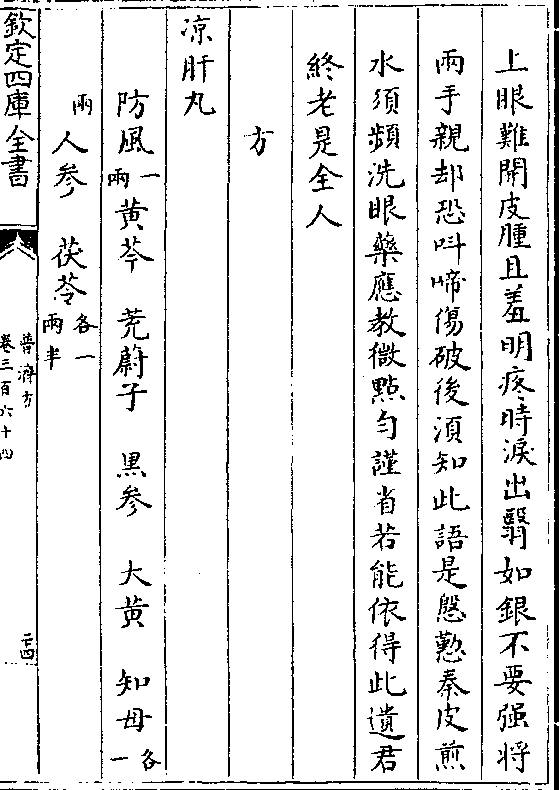 上眼難開皮腫且羞明疼時淚出翳如銀不要强將
兩手親却恐呌啼傷破後須知此語是慇懃秦皮煎
水須頻洗眼藥應教微點勻謹省若能依得此遺君
終老是全人
方
凉肝丸
防風一兩黄芩 茺蔚子 黒参 大黄 知母各一
兩人参 茯苓各一兩半
欽定四庫全書
普濟方
卷三百六十四
二十四